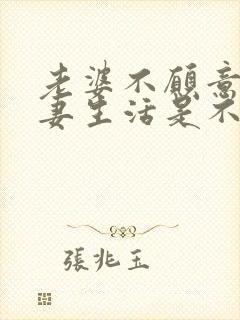 老婆不願意
妻生活是不
張兆玉